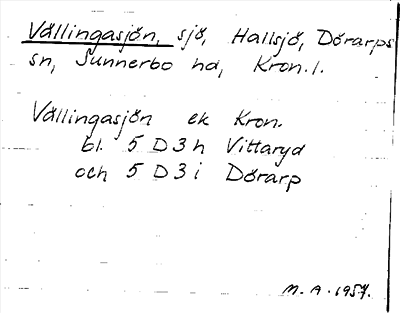 Vällingasjön, sjö, Hallsjö, Dörarps
sn, Sunnerbo hd, Kron.l.
Vällingasjön ek Kron.
bl. 5 D 3 h Vittaryd
och 5 D 3 i Dörarp
M.A. 1957.